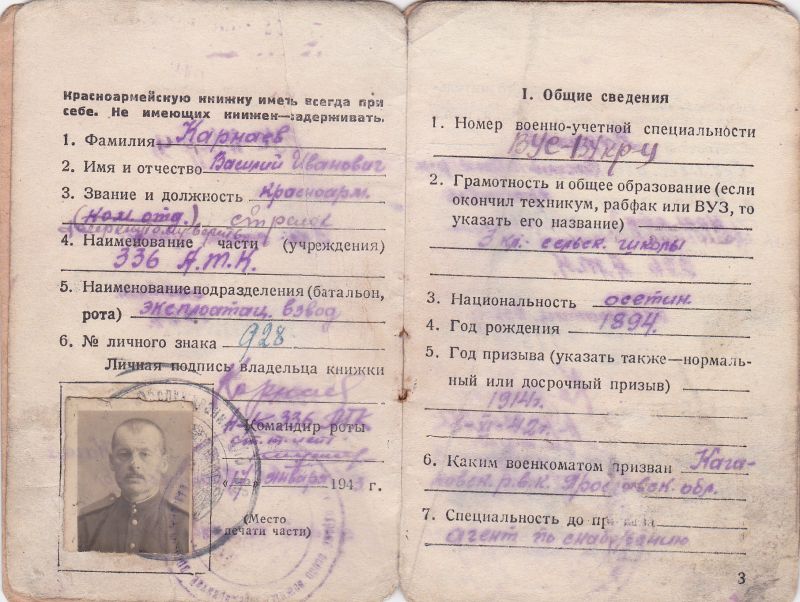 Красноармейскую книжку иметь всегда при
себе. Не имеющих книжек—задерживать.
1. Фамилия Карнаев
2. Имя и отчество Василий Иванович
3. Звание и должность Красноарм.
(ком отд.) стрелок
4. Наименование части (учреждения)
336 А.Т.К.
5. Наименование подразделения (батальон,
рота) эксплоатац. взвод
6. № личного знака 928
Личная подпись владельца книжки
Н-к 336
Командир роты
января 194 г.
(Место
печати части)
I. Общие сведения
1. Номер военно-учетной специальности
ВУС-
2. Грамотность и общее образование (если
окончил техникум, рабфак или ВУЗ, то
указать его название)
3 кл. сельск. школы
3. Национальность осетин.
4. Год рождения 1894.
5. Год призыва (указать также—нормаль-
ный или досрочный призыв)
1914 г.
6. Каким военкоматом призван
р.в.к. Ярославск. обл.
7. Специальность до призыва
агент по снабжению
3